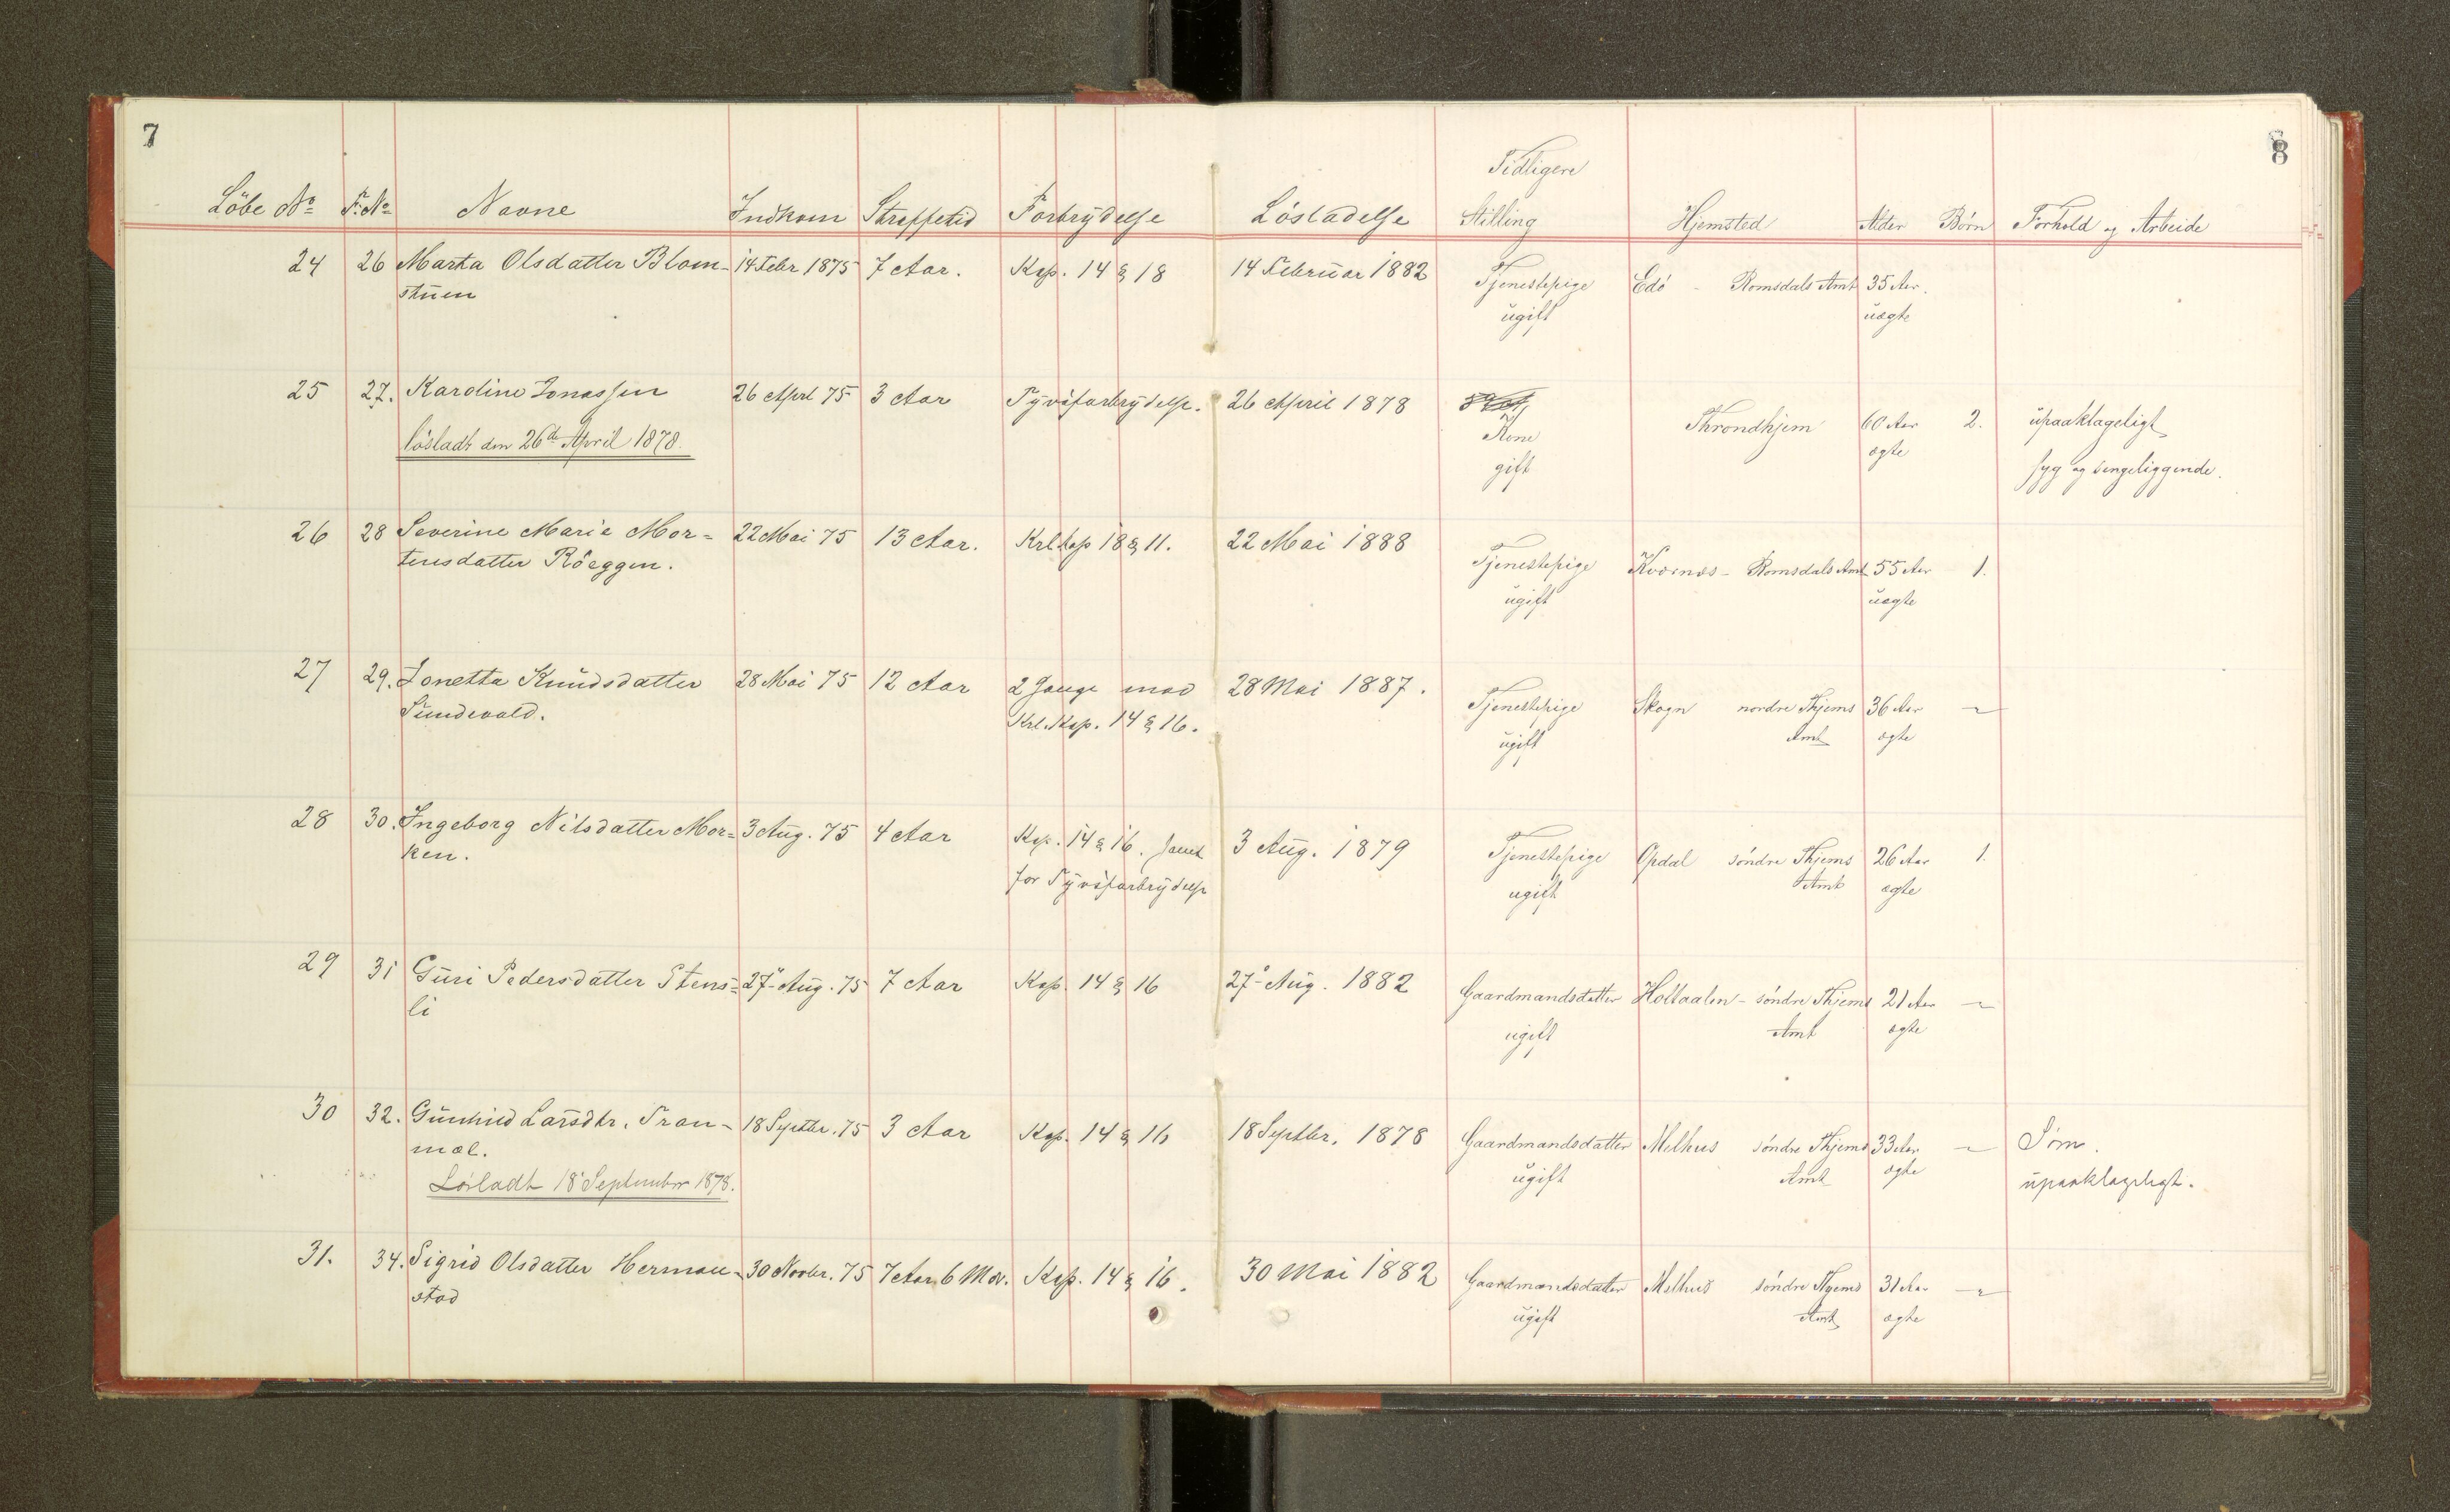 7
8
Löbe No F. No Navne Indkom Straffetid Forbrydelse Løsladelse Tidligere Stilling Hjemsted Alder Børn Forhold og Arbeide
24 26 Marta Olsdatter Blom- 14 Febr 1875 7 Aar. Kap. 14 § 18 14 Februar 1882 Tjenestepige Edö - Romsdals Amt 35 Aar.
stuen ugift uægte
25 27. Karoline Jonassen 26 April 75 3 Aar Tyvsforbrydelse. 26 April 1878 Kone Throndhjem 60 Aar 2. upaaklageligt
løsladt den 26de April 1878. gift ægte syg og sengeliggende.
26 28 Severine Marie Mor= 22 Mai 75 13 Aar. Krl. Kap 18 § 11. 22 Mai 1888 Tjenestepige Kværnæs - Romsdals Amt 55 Aar 1.
tensdatter Röeggen. ugift uægte
27 29. Jonetta Knudsdatter 28 Mai 75 12 Aar 2 Gange mod 28 Mai 1887. Tjenestepige Skogn nordre Thjems 36 Aar -
Sundevald. Krl. Kap. 14 § 16. ugift Amt ægte
28 30. Ingeborg Nilsdatter Mor= 3 Aug. 75 4 Aar Kap. 14 § 16. samt 3 Aug. 1879 Tjenestepige Opdal söndre Thjems 26 Aar 1.
ken. for Tyvsforbrydelse ugift Amt ægte
29 31 Guri Pedersdatter Stens= 27 Aug. 75 7 Aar Kap. 14 § 16 27 Aug. 1882 Gaardmandsdatter Holtaalen - söndre Thjems 21 Aar -
li ugift Amt ægte
30 32. Gunhild Larsdtr. Tran- 18 Septbr. 75 3 Aar Kap. 14 § 16 18 Septbr. 1878 Gaardmandsdatter Melhus söndre Thjems 33 Aar - Söm.
mæl. ugift Amt ægte upaaklageligt.
Løsladt 18 September 1878.
31. 34. Sigrid Olsdatter Herman- 30 Novbr. 75 7 Aar 6 Md. Kap. 14 § 16. 30 Mai 1882 Gaardmandsdatter Melhus söndre Thjems 31 Aar -
stad ugift Amt ægte